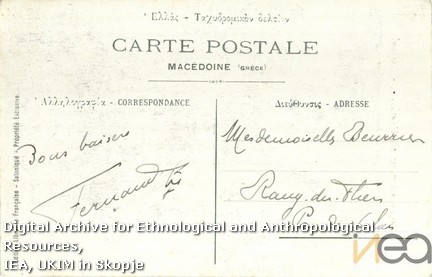 Ἑλλὰς - Ταχυδρομικὸν δελτίον
CARTE POSTALE
MACÉDOINE (GRÈCE)
Ἀλληλογραφία - CORRESPONDANCE
Διεύθυνσις - ADRESSE
Bons baisers
Fernand
Mesdemoiselles Beurrier
Rang-du-Fliers
P. de Calais
Française - Salonique - Propriété Exclusive.
Digital Archive for Ethnological and Anthropological
Resources,
IEA, UKIM in Skopje
iea